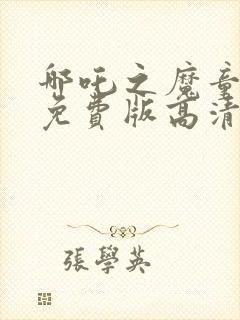 哪吒之魔童
免費版高清
張學英